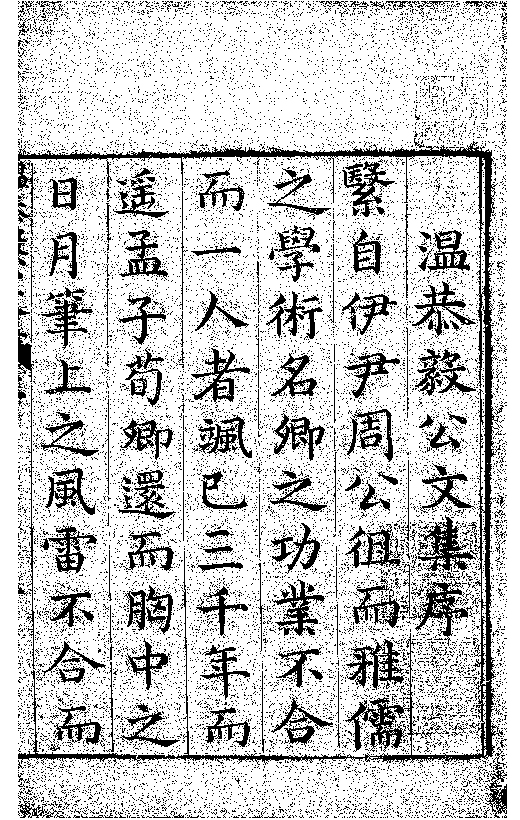 温恭毅公文集序
繄自伊尹周公徂而雅儒
之學術名卿之功業不合
而一人者颯已三千年而
遥孟子荀卿還而胸中之
日月筆上之風雷不合而